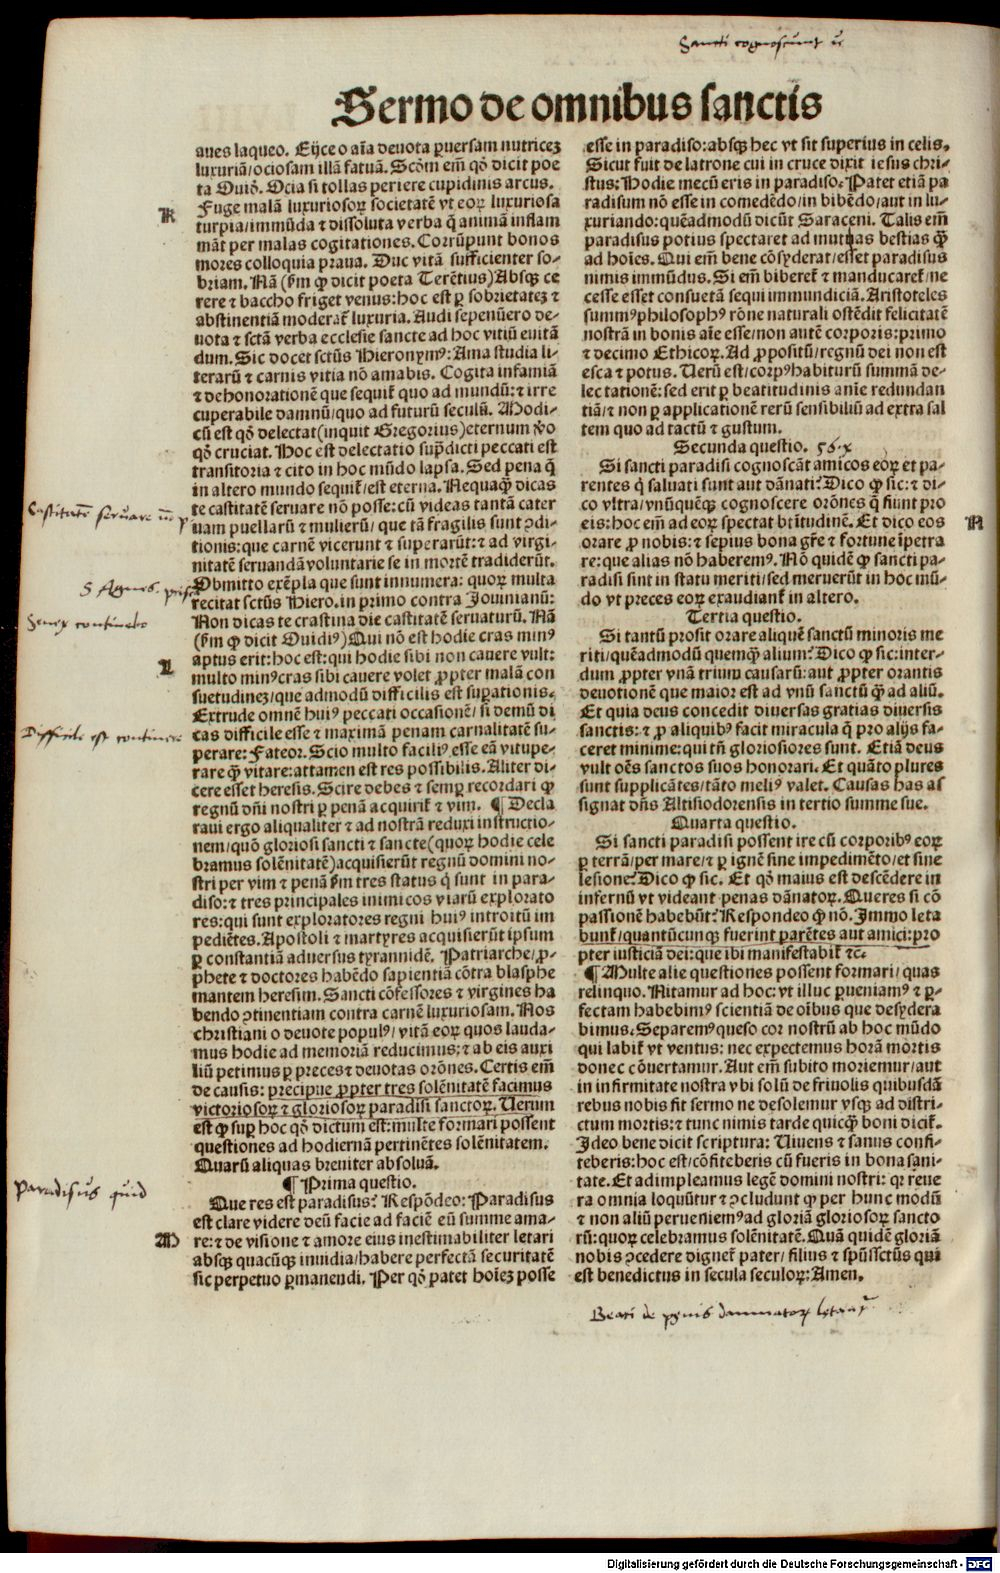 Sancti cognoscunt
Sermo de omnibus sanctis
aues laqueo. Eijce o aĩa deuota ꝑuersam nutricez
luxuriã/ociosam illã fatuã. Scõm em̃ qď dicit poe
ta Ouiď. Ocia si tollas periere cupidinis arcus.
K
Fuge malã luxuriosoꝝ societatẽ vt eoꝝ luxuriosa
turpia/immũda ⁊ dissoluta verba q̃ animã inflam
mãt per malas cogitationes. Corrũpunt bonos
mores colloquia praua. Duc vitã sufficienter so⸗
briam. Nã (ẜm ꝙ dicit poeta Terẽtius) Absqꝫ ce
rere ⁊ baccho friget venus: hoc est ꝑ sobrietatez ⁊
abstinentiã moderať luxuria. Audi sepenũero de⸗
uota ⁊ sctã verba ecclesie sancte ad hoc vitiũ euitã
dum. Sic docet sctũs Hieronymꝰ: Ama studia li⸗
terarũ ⁊ carnis vitia nõ amabis. Cogita infamiã
⁊ dehonorationẽ que sequiť quo ad mundũ: ⁊ irre
cuperabile damnũ/quo ad futurũ seculũ. Modi⸗
cũ est qď delectat (inquit Gregorius) eternum ꝟo
qď cruciat. Hoc est delectatio supdicti peccati est
transitoria ⁊ cito in hoc mũdo lapsa. Sed pena q̃
in altero mundo sequiť/est eterna. Nequaq̃ dicas
te castitatẽ seruare nõ posse: cũ videas tantã cater
Castitatẽ seruare
uam puellarũ ⁊ mulierũ/ que tã fragilis sunt ꝯdi⸗
tionis: que carnẽ vicerunt ⁊ superarũt: ⁊ ad virgi⸗
nitatẽ seruandã voluntarie se in mortẽ tradiderũt.
Obmitto exẽpla que sunt innumera: quoꝝ multa
S Agnes
recitat sctũs Hiero. in primo contra Jouinianũ:
Non dicas te crastina die castitatẽ seruaturũ. Nã
(ẜm ꝙ dicit Ouidiꝰ) Qui nõ est hodie cras minꝰ
aptus erit: hoc est: qui hodie sibi non cauere vult:
L
multo minꝰ cras sibi cauere volet ꝓpter malã con
suetudinez/que admodũ difficilis est supationis.
Extrude omnẽ huiꝰ peccati occasionẽ/ si demũ di
Difficile est continere
cas difficile esse ⁊ maximã penam carnalitatẽ su⸗
perare: Fateor. Scio multo faciliꝰ esse eã vitupe⸗
rare q̃ vitare: attamen est res possibilis. Aliter di⸗
cere esset heresis. Scire debes ⁊ semꝑ recordari ꝙ
regnũ dñi nostri ꝑ penã acquiriť ⁊ vim. ¶ Decla
raui ergo aliqualiter ⁊ ad nostrã reduxi instructio⸗
nem/quõ gloriosi sancti ⁊ sancte (quoꝝ hodie cele
bramus solẽnitatẽ) acquisierũt regnũ domini no⸗
stri per vim ⁊ penã ẜm tres status q̃ sunt in para⸗
diso: ⁊ tres principales inimicos viarũ explorato
res: qui sunt exploratores regni huiꝰ introitũ im
pediẽtes. Apostoli ⁊ martyres acquisierũt ipsum
ꝑ constantiã aduersus tyrannidẽ. Patriarche/ꝓ⸗
phete ⁊ doctores habẽdo sapientiã cõtra blasphe
mantem heresim. Sancti cõfessores ⁊ virgines ha
bendo ꝯtinentiam contra carnẽ luxuriosam. Nos
christiani o deuote populꝰ/ vitã eoꝝ quos lauda⸗
mus hodie ad memoriã reducimus: ⁊ ab eis auxi
liũ petimus ꝑ preces ⁊ deuotas orõnes. Certis em̃
de causis: precipue ꝓpter tres solẽnitatẽ facimus
victoriosoꝝ ⁊ gloriosoꝝ paradisi sanctoꝝ. Uerum
est ꝙ suꝑ hoc qď dictum est: multe formari possent
questiones ad hodiernã pertinẽtes solẽnitatem.
Quarũ aliquas breuiter absoluã.
Paradisus quid
¶ Prima questio.
Que res est paradisus? Respõdeo: Paradisus
est clare videre deũ facie ad faciẽ eũ summe ama⸗
M
re: ⁊ de visione ⁊ amore eius inestimabiliter letari
absqꝫ quacũqꝫ inuidia/habere perfectã securitatẽ
sic perpetuo ꝑmanendi. Per qď patet hoĩez posse
esse in paradiso: absqꝫ hec vt sit superius in celis.
Sicut fuit de latrone cui in cruce dixit iesus chri⸗
stus: Hodie mecũ eris in paradiso. Patet etiã pa
radisum nõ esse in comedẽdo/in bibẽdo/aut in lu⸗
xuriando: quẽadmodũ dicũt Saraceni. Talis em̃
paradisus potius spectaret ad mutuas bestias q̃
ad hoĩes. Qui em̃ bene cõsyderat/esset paradisus
nimis immũdus. Si em̃ bibereť ⁊ manducareť/ne
cesse esset consuetã sequi immundiciã. Aristoteles
summꝰ philosophꝰ rõne naturali ostẽdit felicitatẽ
nostrã in bonis aĩe esse/non autẽ corporis: primo
⁊ decimo Ethicoꝝ. Ad ꝓpositũ/regnũ dei non est
esca ⁊ potus. Uerũ est/corpꝰ habiturũ summã de⸗
lectationẽ: sed erit ꝑ beatitudinis anĩe redundan
tiã/⁊ non ꝑ applicationẽ rerũ sensibiliũ ad extra sal
tem quo ad tactũ ⁊ gustum.
Secunda questio. 56.x
Si sancti paradisi cognoscãt amicos eoꝝ et pa⸗
rentes q̃ saluati sunt aut dãnati? Dico ꝙ sic: ⁊ di⸗
co vltra/vnũquẽqꝫ cognoscere orõnes q̃ fiunt pro
eis: hoc em̃ ad eoꝝ spectat btĩtudinẽ. Et dico eos
N
orare ꝓ nobis: ⁊ sepius bona grẽ ⁊ fortune ĩpetra
re: que alias nõ haberemꝰ. Nõ quidẽ ꝙ sancti pa⸗
radisi sint in statu meriti/sed meruerũt in hoc mũ⸗
do vt preces eoꝝ exaudianť in altero.
Tertia questio.
Si tantũ prosit orare aliquẽ sanctũ minoris me
riti/quẽadmodũ quemq̃ alium? Dico ꝙ sic: inter⸗
dum ꝓpter vnã trium causarũ: aut ꝓpter orantis
deuotionẽ que maior est ad vnũ sanctũ q̃ ad aliũ.
Et quia deus concedit diuersas gratias diuersis
sanctis: ⁊ ꝓ aliquibꝰ facit miracula q̃ pro alijs fa⸗
ceret minime: qui tñ gloriosiores sunt. Etiã deus
vult oẽs sanctos suos honorari. Et quãto plures
sunt supplicãtes/tãto meliꝰ valet. Causas has as
signat dñs Altisiodorensis in tertio summe sue.
Quarta questio.
Si sancti paradisi possent ire cũ corporibꝰ eoꝝ
ꝑ terrã/per mare/⁊ ꝑ ignẽ sine impedimẽto/et sine
lesione? Dico ꝙ sic. Et qď maius est descẽdere in
infernũ vt videant penas dãnatoꝝ. Queres si cõ
passionẽ habebũt? Respondeo ꝙ nõ. Immo leta
bunť/quantũcunqꝫ fuerint parẽtes aut amici: pro
pter iusticiã dei: que ibi manifestabiť ⁊c.
¶ Multe alie questiones possent formari/quas
relinquo. Nitamur ad hoc: vt illuc ꝑueniamꝰ ⁊ ꝑ⸗
fectam habebimꝰ scientiã de oĩbus que desydera
bimus. Separemꝰ queso cor nostrũ ab hoc mũdo
qui labiť vt ventus: nec expectemus horã mortis
donec cõuertamur. Aut em̃ subito moriemur/aut
in infirmitate nostra vbi solũ de friuolis quibusdã
rebus nobis fit sermo ne desolemur vsqꝫ ad distri⸗
ctum mortis: ⁊ tunc nimis tarde quicq̃ boni diciť.
Ideo bene dicit scriptura: Uiuens ⁊ sanus confi⸗
teberis: hoc est/cõfiteberis cũ fueris in bona sani⸗
tate. Et adimpleamus legẽ domini nostri: qꝛ reue
ra omnia loquũtur ⁊ ꝯcludunt ꝙ per hunc modũ
⁊ non aliũ perueniemꝰ ad gloriã gloriosoꝝ sancto
rũ: quoꝝ celebramus solẽnitatẽ. Quã quidẽ gloriã
nobis ꝯcedere digneť pater/ filius ⁊ spũssctũs qui
est benedictus in secula seculoꝝ: Amen.
Beati de penis damnatoꝝ letantur
Digitalisierung gefördert durch die Deutsche Forschungsgemeinschaft - DFG